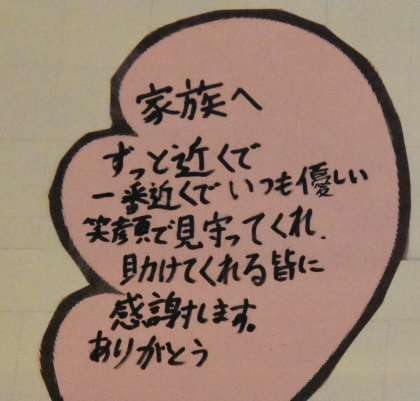 家族へ
ずっと近くで
一番近くでいつも優しい
笑顔で見守ってくれ、
助けてくれる皆に
感謝します。
ありがとう